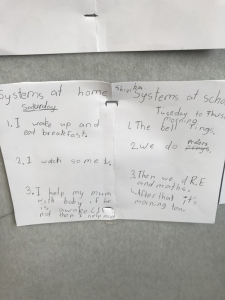 Systems at home
Saturday
1. I wake up and
eat breakfast.
2. I watch some t.
3. I help my mum
with baby if he
is awake if
not then I help mum
Systems at scho
Tuesday to Thurs
morning
1. The bell rings.
2. we do
3. Then we do R.E
and maths.
After that it's
morning tea.